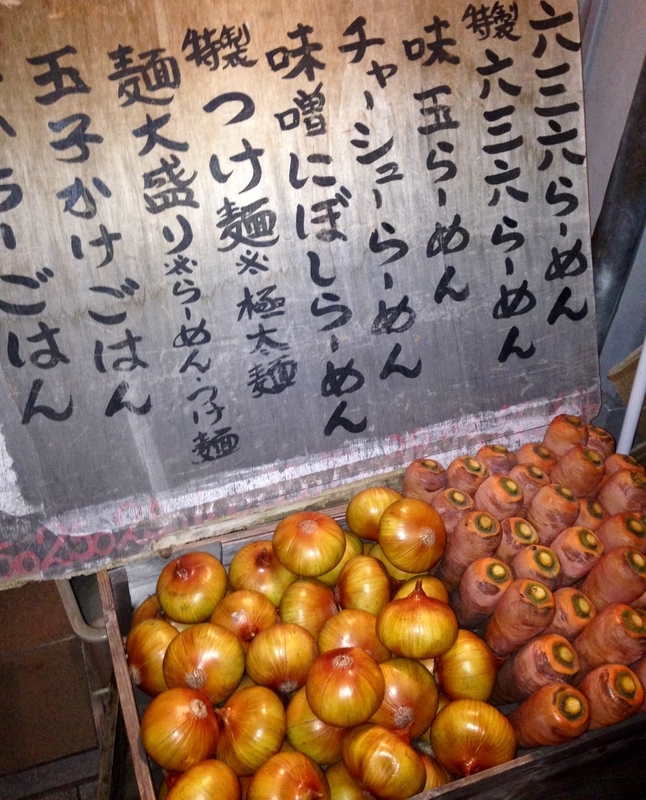 六三六らーめん
特製六三六らーめん
味玉らーめん
チャーシューらーめん
味噌にぼしらーめん
特製つけ麺※極太麺
麺大盛り※らーめん・つけ麺
玉子かけごはん
らーごはん